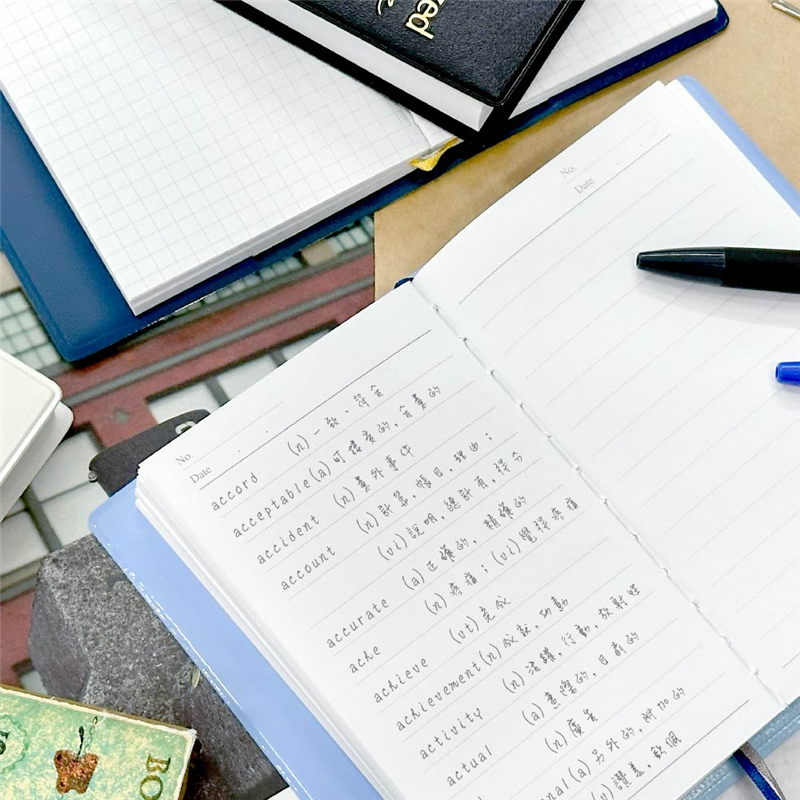 ed
No.
Date
No.
Date
accord (n) 一致、符合
acceptable (a) 可接受的，合意的
accident (n) 意外事件
account (n) 計算，帳目，理由；
(vi) 說明，總計有，得分
accurate (a) 正確的，精確的
ache (n) 疼痛；(vi) 覺得疼痛
achieve (vt) 完成
achievement (n) 成就，功勳
activity (n) 活躍，行動，放射性
actual (a) 真實的，目前的
(n) 廣告
onal (a) 另外的，附加的
讚美，欽佩
BO